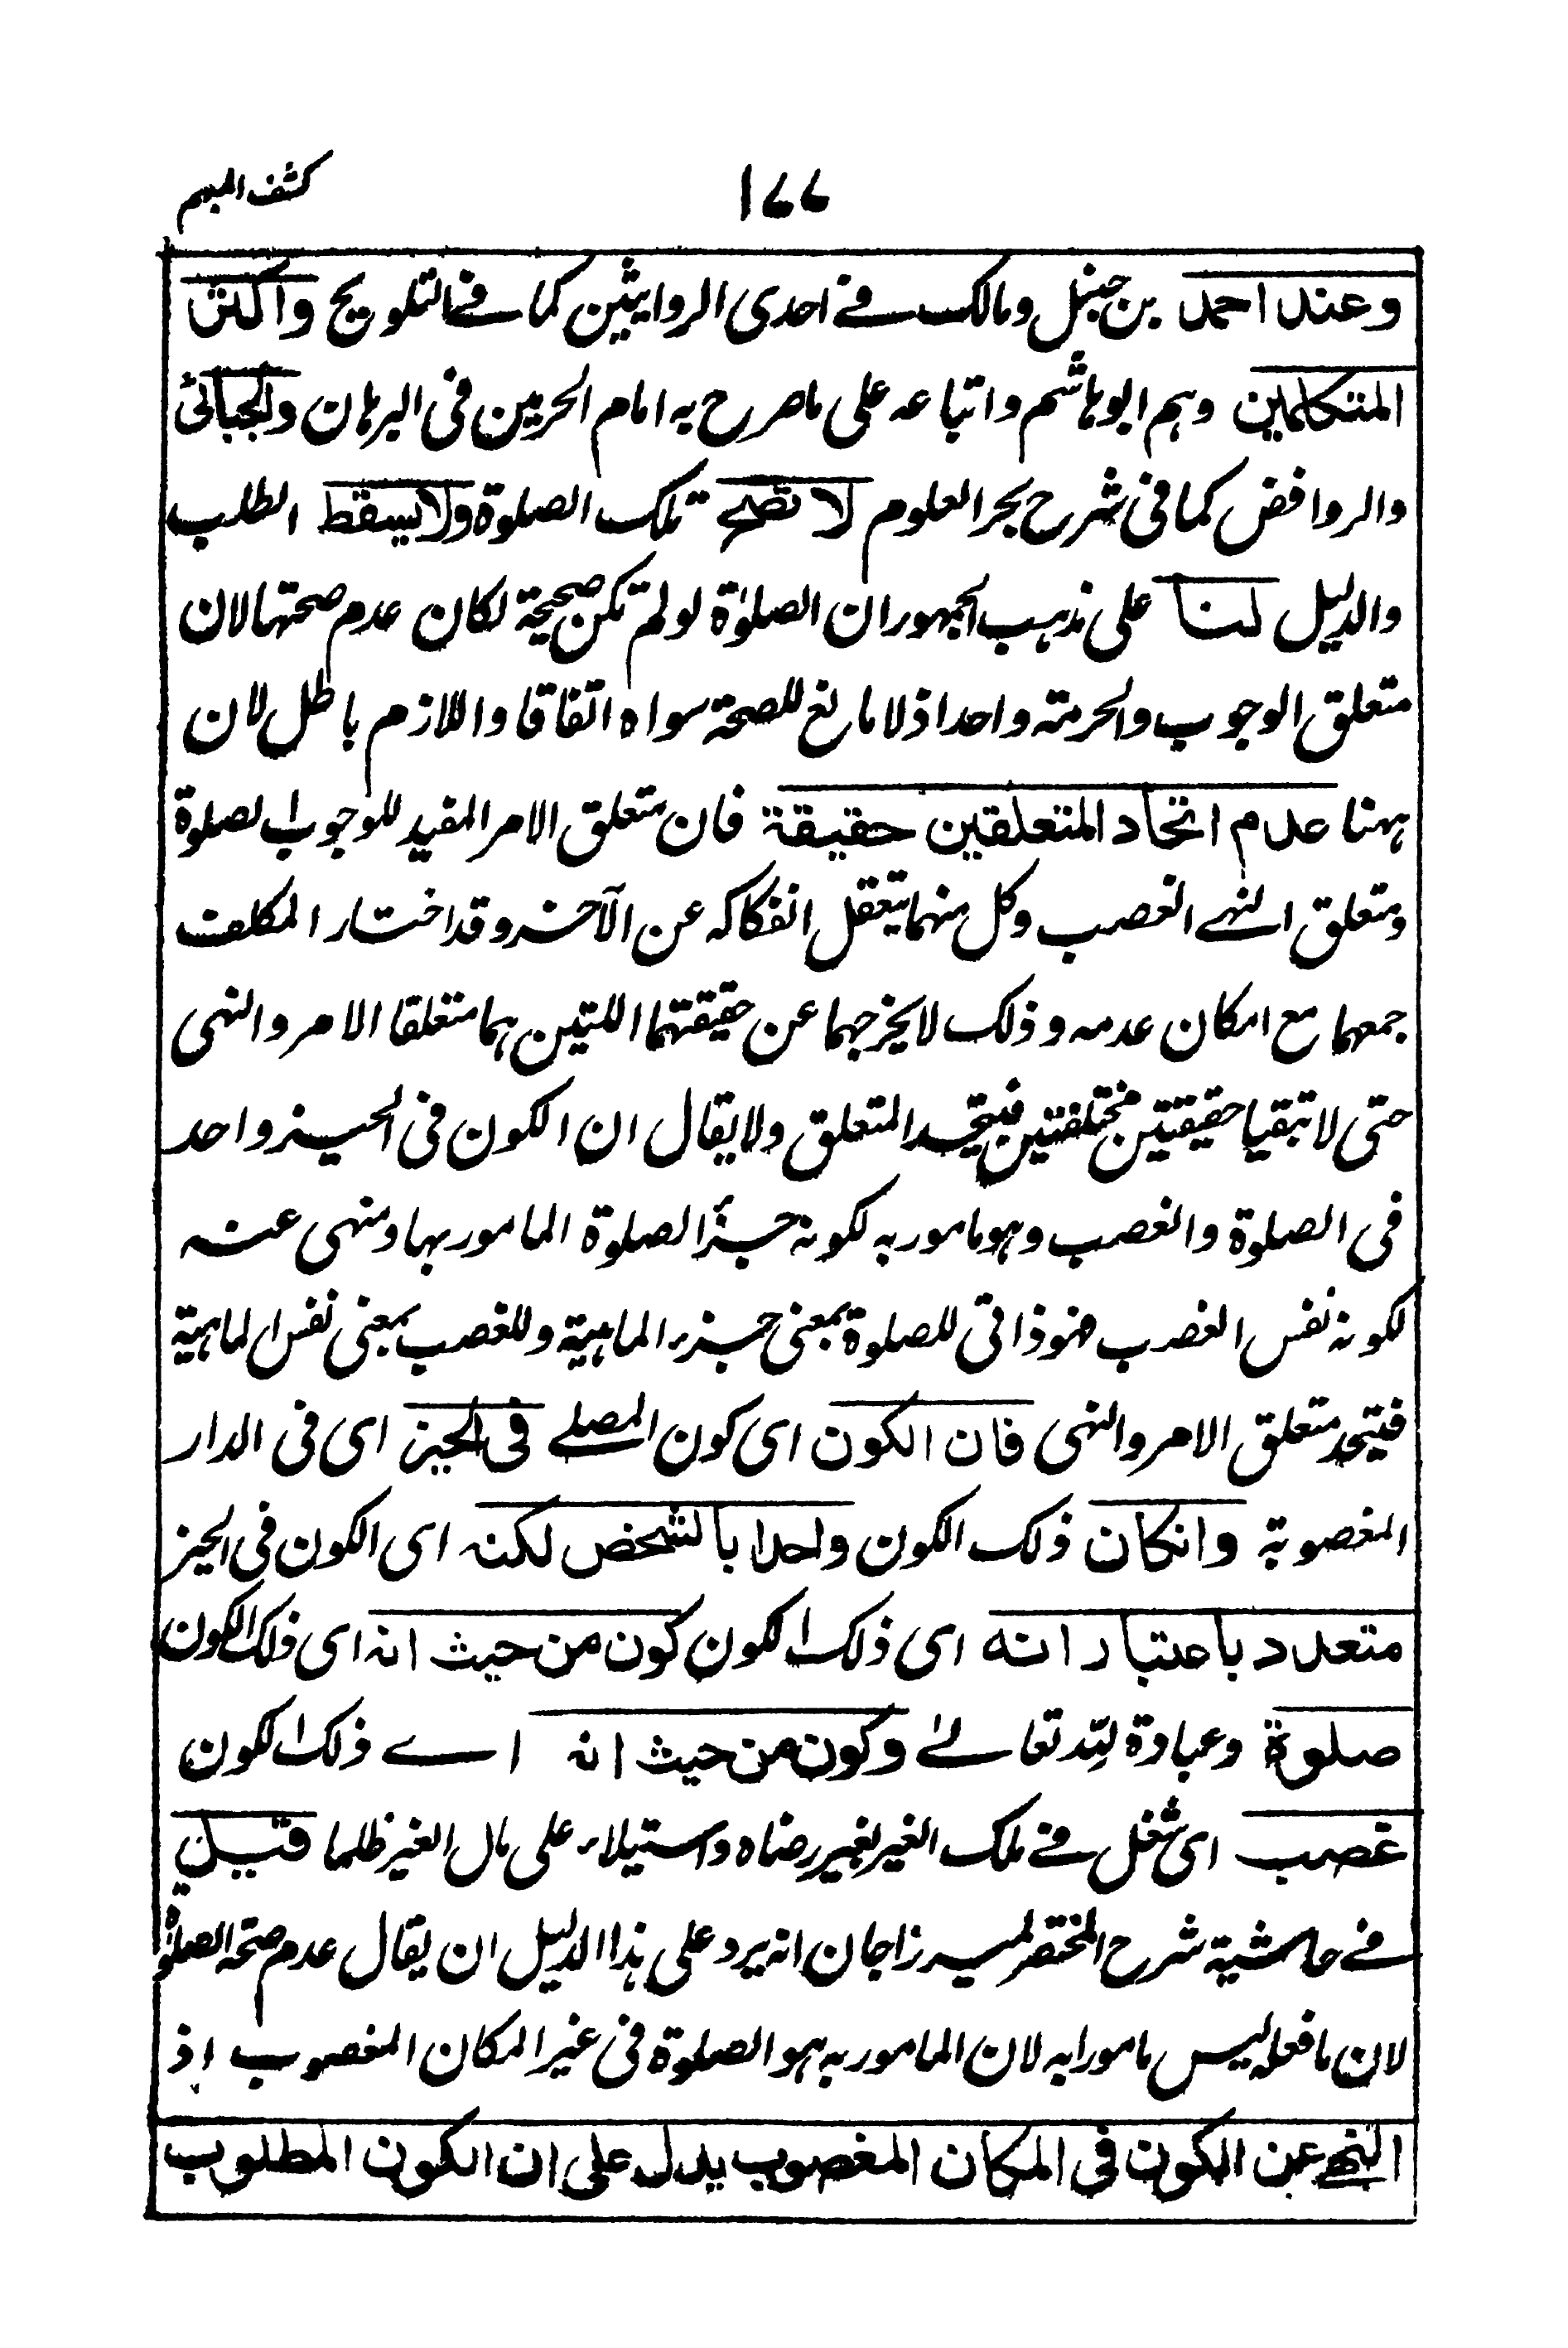 كشف المبهم
١٧٧
وعند احمد بن حنبل ومالك في احدى الروايتين كما في التلويح واكثر
المتكلمين وهم ابوهاشم واتباعه على ما صرح به امام الحرمين في البرهان والجبائي
والروافض كما في شرح بحر العلوم لا تصح تلك الصلوة ولا يسقط الطلب
والدليل لنا على مذهب الجمهور ان الصلوٰة لو لم تكن صحيحة لكان عدم صحتها لان
متعلق الوجوب والحرمة واحد اذ لا مانع للصحة سواه اتفاقا واللازم باطل لان
ههنا عدم اتحاد المتعلقين حقيقة فان متعلق الامر المفيد للوجوب الصلوة
ومتعلق النهي الغصب وكل منهما يتعقل انفكاكه عن الآخر وقد اختار المكلف
جمعهما مع امكان عدمه وذلك لا يخرجهما عن حقيقتهما اللتين هما متعلقا الامر والنهى
حتى لا تبقيا حقيقتين مختلفتين فيتحد المتعلق ولا يقال ان الكون في الحيز واحد
فى الصلوة والغصب وهو مامور به لكونه جزأ الصلوة المامور بها ومنهى عنه
لكونه نفس الغصب فهو ذاتي للصلوة بمعنى جزء الماهية وللغصب بمعنى نفس الماهية
فيتحد متعلق الامر والنهى فان الكون اى كون المصلے فى الحيز اى فى الدار
المغصوبة وانكان ذلك الكون واحدا بالشخص لكنه اى الكون فى الحيز
متعدد باعتبار انه اى ذلك الكون كون من حيث انه اى ذلك الكون
صلوة وعبادة لله تعالىٰ وكون من حيث انه اے ذلك الكون
غصب اى شغل في ملك الغير بغير رضاه واستيلاء على مال الغير ظلما قيل
في حاشية شرح المختصر لميرزاجان انه يرد على هذا الدليل ان يقال عدم صحة الصلوٰة
لان ما فعله ليس مامورا به لان المامور به هو الصلوة فى غير المكان المغصوب اذ
النهے عن الكون في المكان المغصوب يدل على ان الكون المطلوب